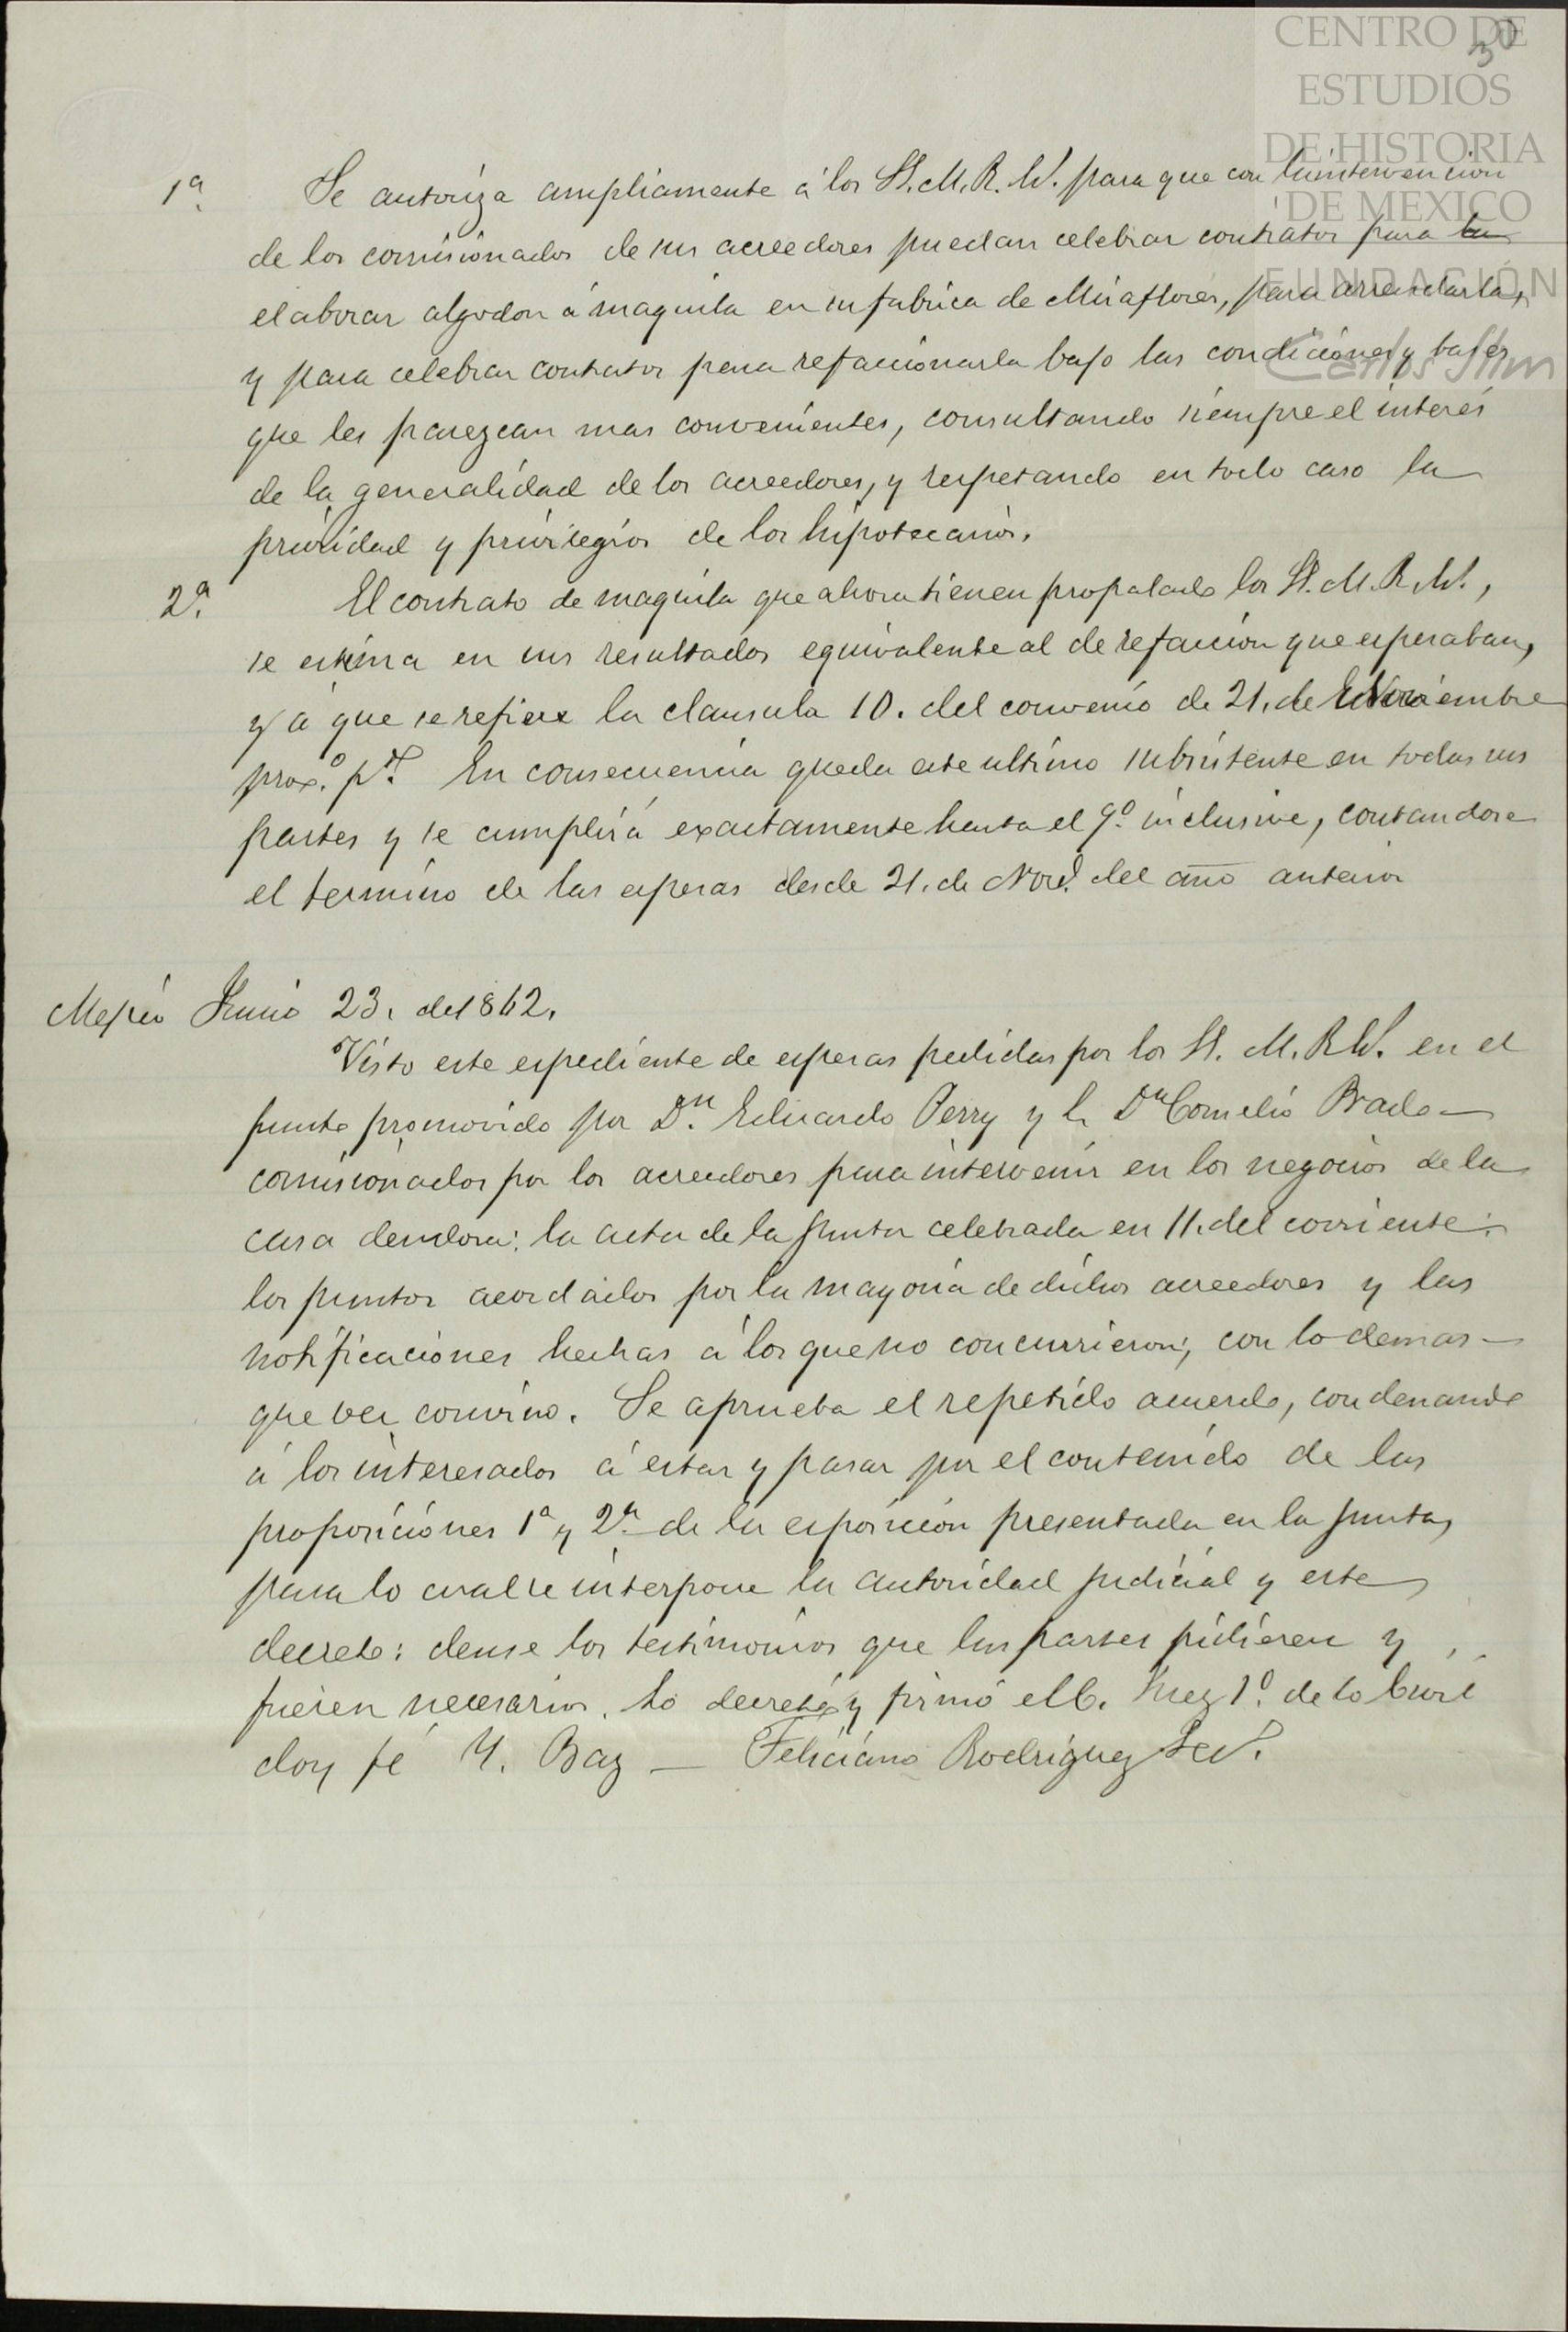 CENTRO DE
ESTUDIOS
DE HISTORIA
DE MEXICO
FUNDACIÓN
Carlos Slim
30
1ª. Se autoriza ampliamente á los SS. M. R. W. para que con la intervencion
de los comisionados de sus acreedores puedan celebrar contratos para la
elaborar algodon á maquila en su fabrica de Miraflores, para arrendarla,
y para celebrar contratos para refaccionarla bajo las condiciones y bases
que les parezcan mas convenientes, consultando siempre el interes
de la generalidad de los acreedores, y respetando en todo caso la
prioridad y privilegios de los hipotecarios.
2ª. El contrato de maquila que ahora tienen propalado los SS. M. R. W.,
se estima en sus resultados equivalente al de refaccion que esperaban,
y á que se refiere la clausula 10. del convenio de 21. de Noviembre
prox.º pº. En consecuencia queda este ultimo subsistente en todas sus
partes y se cumplirá exactamente hasta el 9º. inclusive, contandose
el termino de las esperas desde 21. de Nove. del año anterior
Mexico Junio 23. de 1862.
Visto este espediente de esperas pedidas por los SS. M. R. W. en el
punto promovido por Dn. Eduardo Perry y Dn Cornelio Prado
comisionados por los acreedores para intervenir en los negocios de la
casa deudora: la acta de la Junta celebrada en 11. del corriente:
los puntos acordados por la mayoria de dichos acreedores y las
notificaciones hechas á los que no concurrieron; con lo demas
que ver convino. Se aprueba el repetido acuerdo, condenando
á los interesados á estar y pasar por el contenido de las
proposiciones 1ª y 2ª. de la esposicion presentada en la Junta,
para lo cual se interpone la autoridad judicial y este
decreto: dense los testimonios que las partes pidieren y
fueren necesarios. Lo decretó y firmó el C. Juez 1º. de lo Civil
doy fé Y. Baz — Feliciano Rodriguez